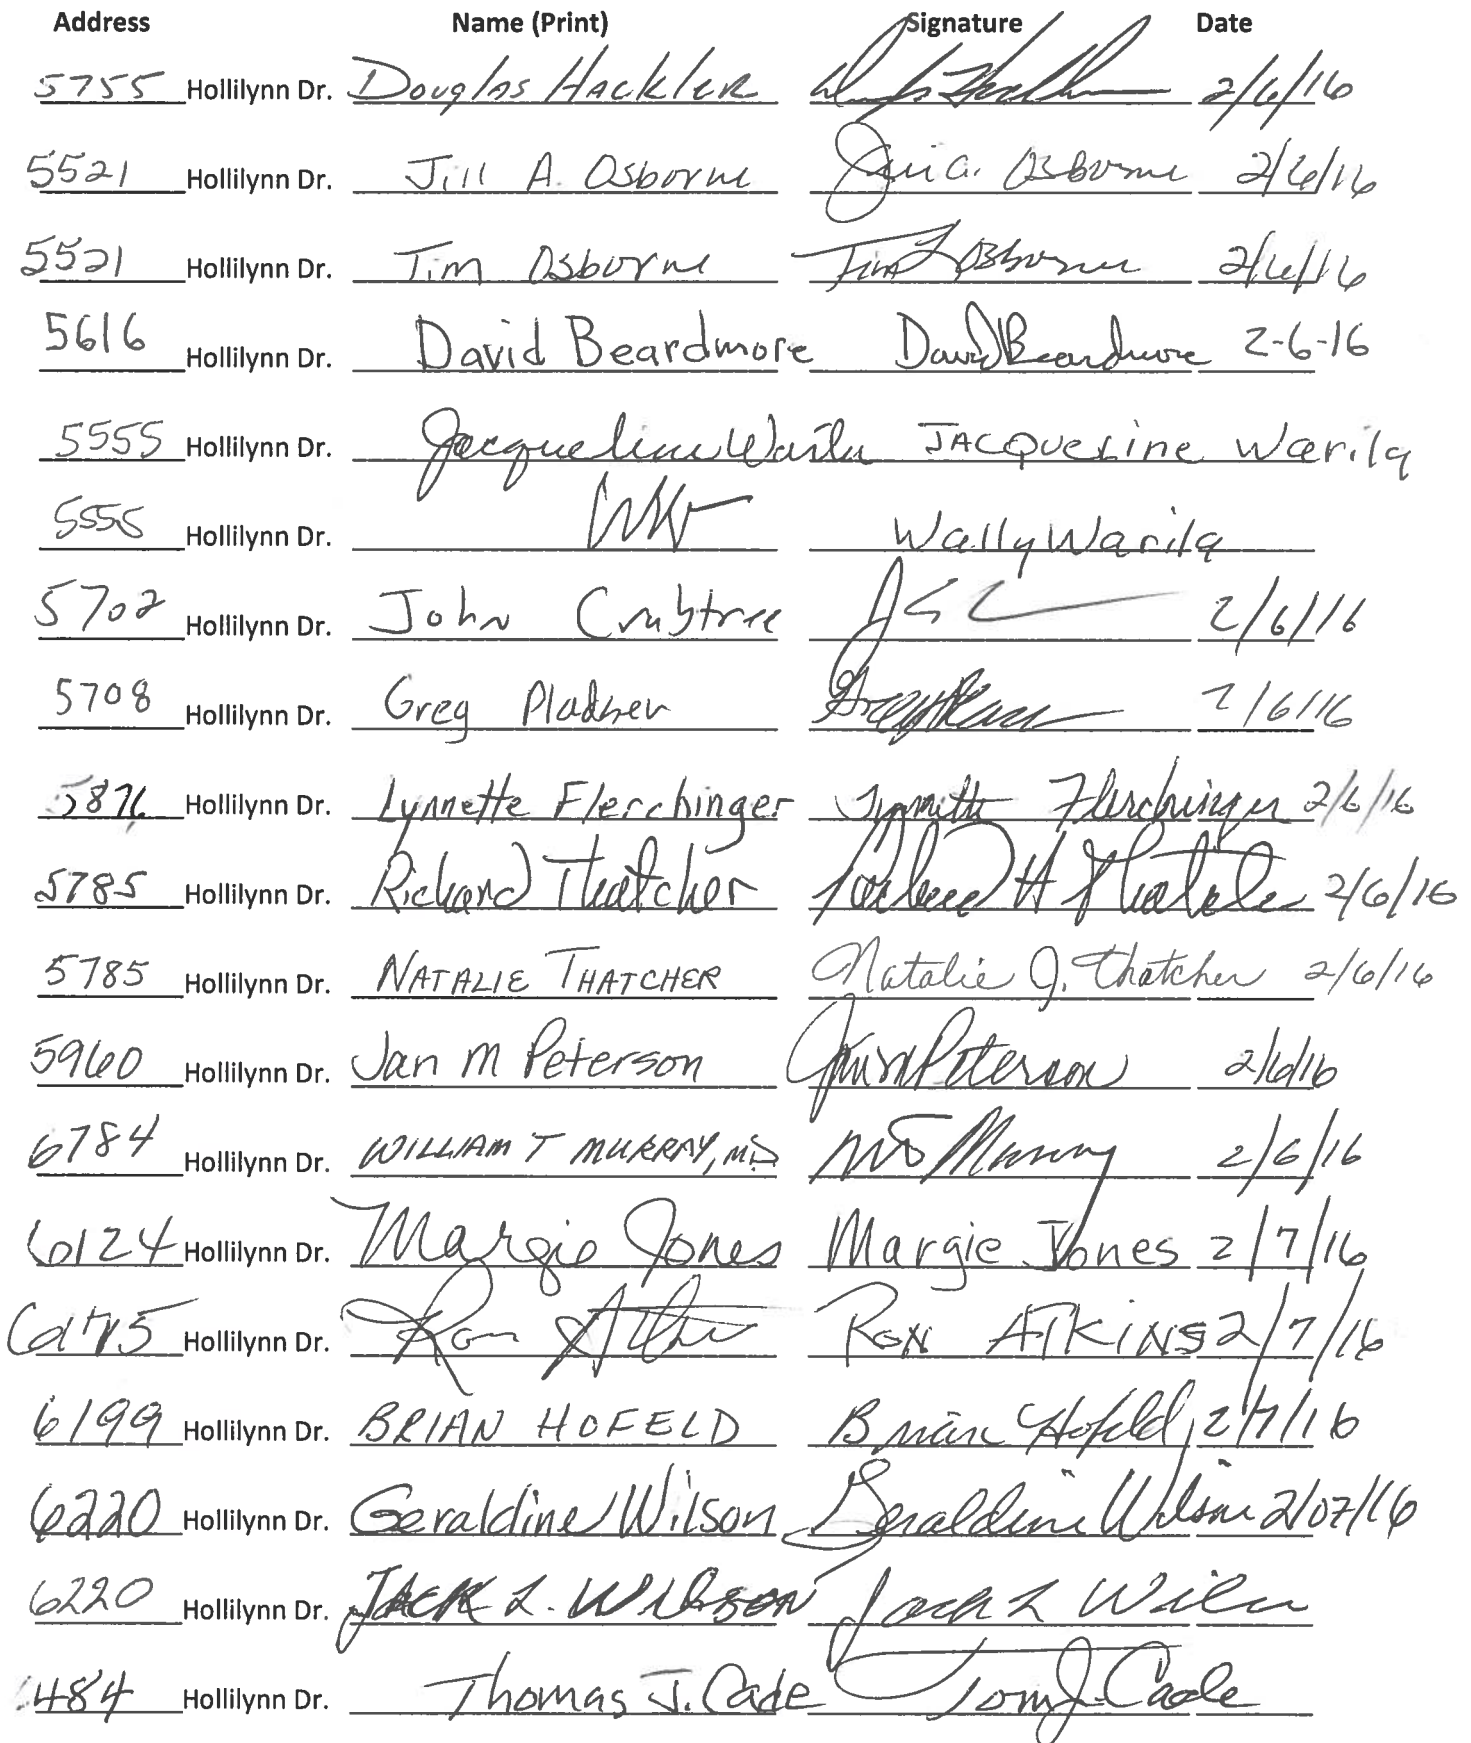 Address Name (Print) Signature Date
5755 Hollilynn Dr. Douglas Hackler 2/6/16
5521 Hollilynn Dr. Jill A. Osborne Jill A. Osborne 2/6/16
5521 Hollilynn Dr. Tim Osborne Tim Osborne 2/6/16
5616 Hollilynn Dr. David Beardmore David Beardmore 2-6-16
5555 Hollilynn Dr. Jacqueline Warila JACQueLine Warila
5555 Hollilynn Dr. Wally Warila
5702 Hollilynn Dr. John Crabtree 2/6/16
5708 Hollilynn Dr. Greg 2/6/16
5876 Hollilynn Dr. Lynnette Flerchinger Lynnette Flerchinger 2/6/16
5785 Hollilynn Dr. Richard Thatcher Richard H Thatcher 2/6/16
5785 Hollilynn Dr. NATALIE THATCHER Natalie J. Thatcher 2/6/16
5960 Hollilynn Dr. Jan M Peterson Jan M Peterson 2/6/16
6784 Hollilynn Dr. WILLIAM T MURRAY, MD Murray 2/6/16
6124 Hollilynn Dr. Margie Jones Margie Jones 2/7/16
Hollilynn Dr. Ron RON ATKINS 2/7/16
6199 Hollilynn Dr. BRIAN HOFELD Brian Hofeld 2/7/16
6220 Hollilynn Dr. Geraldine Wilson Geraldine Wilson 2/07/16
6220 Hollilynn Dr. JACK L. WILSON Jack L Wilson
Hollilynn Dr. Thomas J. Cade Tom J. Cade